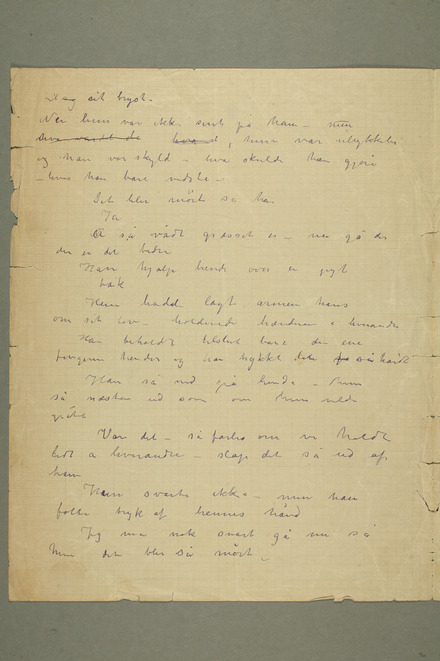 sit bryst.
Nei hun var ikke sint på ham – men
hun var ulykkelig
og han var skyld – hva skulde han gjøre
– hvis han bare vidste –
Det blir mørkt sa han
Ja
Å så vådt græsset er – nu gå der
der er det bedre
Han hjalp hende over en
bæk
Hun hadde lagt armen hans
om sit liv – holdende hændene i hverandre
Han beholdt tilslut bare den ene
fingeren hendes og han trykket så hårdt
Han så ned på hende – hun
så næsten ud som om hun vilde
gråte
Var det – så farlig om vi holdt
lidt a hverandre – slap det så ud af
ham
Hun svarte ikke – men han
følte tryk af hennes hånd
Jeg må nok snart gå nu så
hun det blir så mørkt –